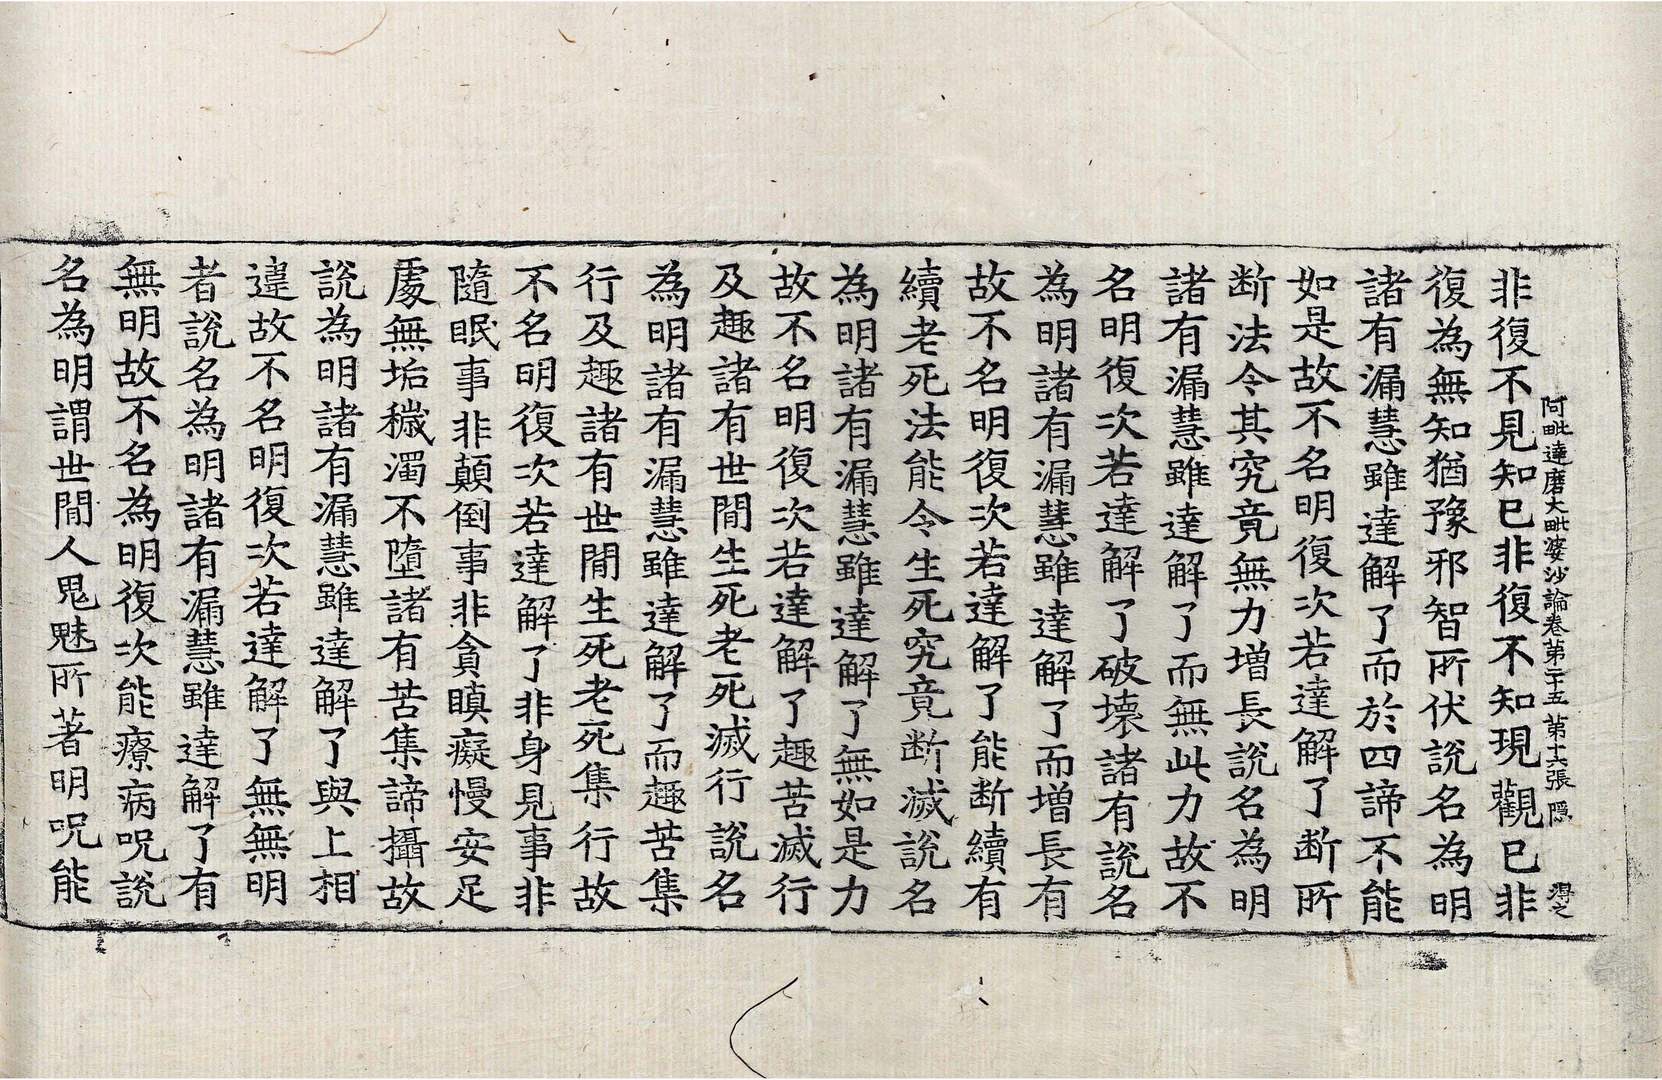 阿毗達磨大毗婆沙論卷苐二十五 苐十六張 隱 得之
非復不見知已非復不知現觀已非
復為無知猶豫邪智所伏說名為明
諸有漏慧雖達解了而於四諦不能
如是故不名明復次若達解了断所
断法令其究竟無力增長說名為明
諸有漏慧雖達解了而無此力故不
名明復次若達解了破壞諸有說名
為明諸有漏慧雖達解了而增長有
故不名明復次若達解了能断續有
續老死法能令生死究竟断滅說名
為明諸有漏慧雖達解了無如是力
故不名明復次若達解了趣苦滅行
及趣諸有世間生死老死滅行說名
為明諸有漏慧雖達解了而趣苦集
行及趣諸有世間生死老死集行故
不名明復次若達解了非身見事非
隨眠事非顛倒事非貪瞋癡慢安足
處無垢穢濁不墮諸有苦集諦攝故
說為明諸有漏慧雖達解了與上相
違故不名明復次若達解了無無明
者說名為明諸有漏慧雖達解了有
無明故不名為明復次能療病呪說
名為明謂世間人鬼魅所著明呪能